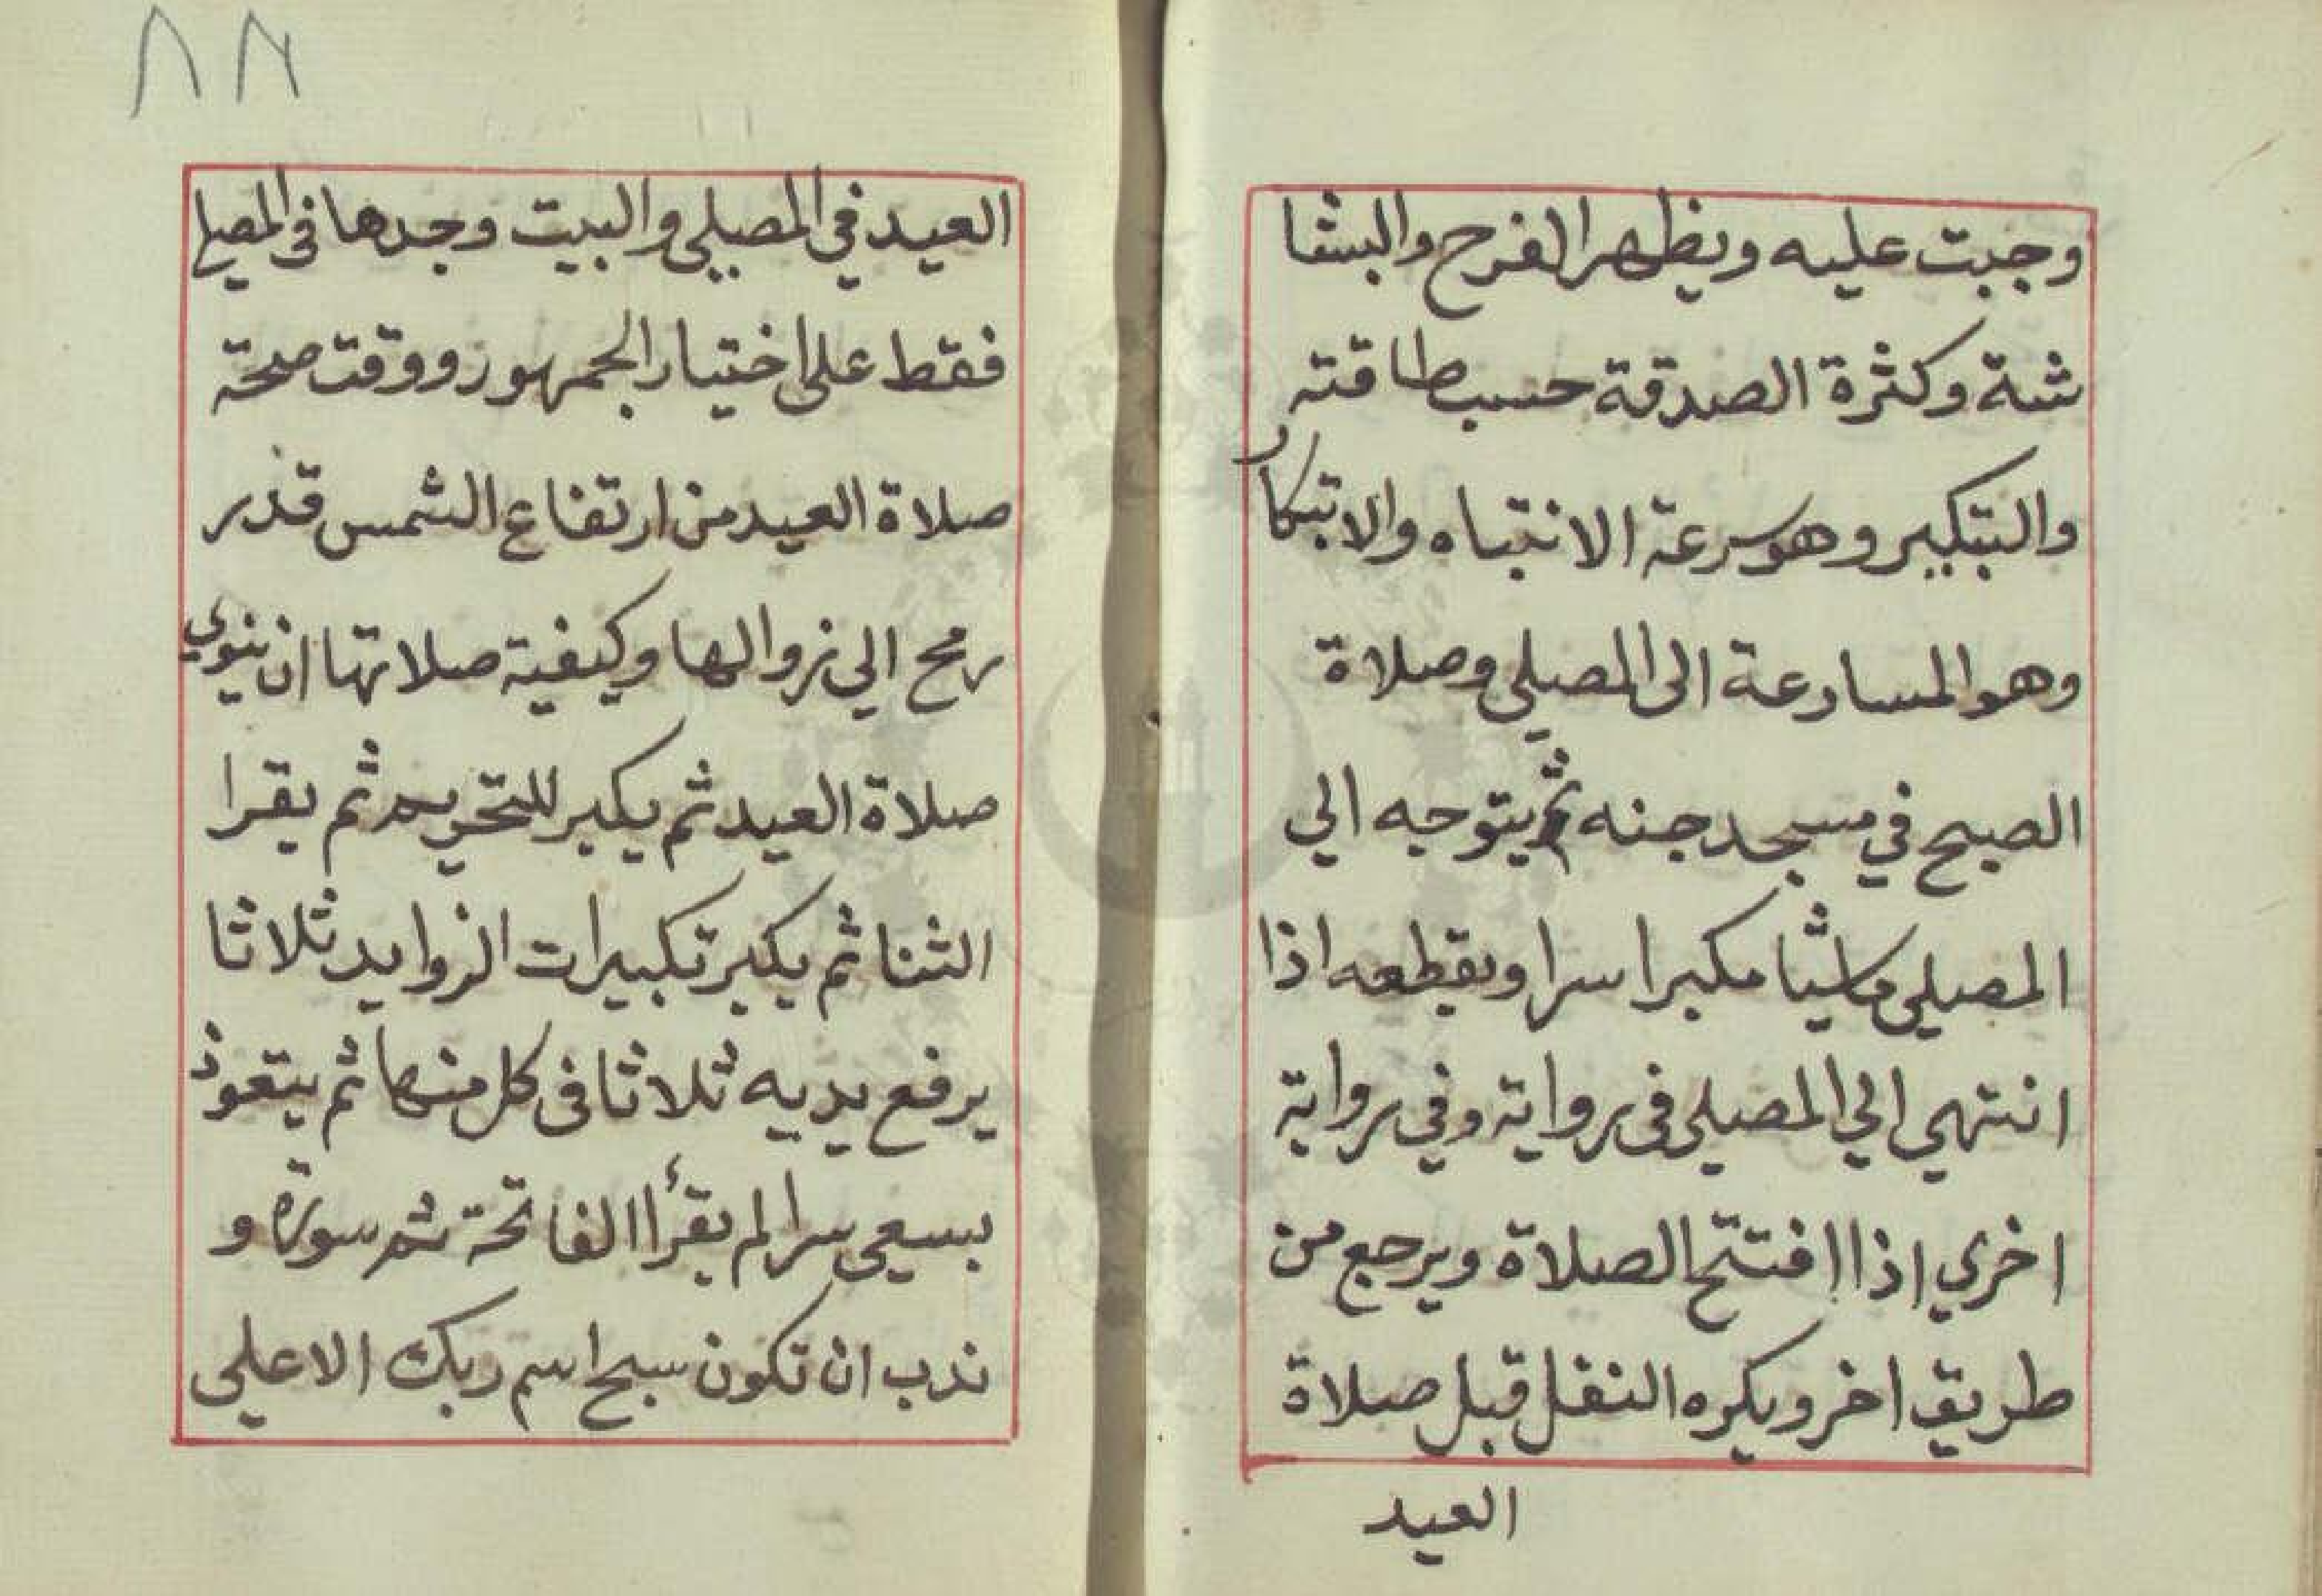 وجبت عليه ويظهر الفرح والبشا
شة وكثرة الصدقة حسب طاقته
والتبكير وهو سرعة الانتباه والابتكار
وهو المسارعة الى المصلي وصلاة
الصبح في مسجد جنه ثم يتوجه الي
المصلي ماشيا مكبرا سرا ويقطعه اذا
انتهي الي المصلي فى رواية وفي رواية
اخري اذا افتتح الصلاة ويرجع من
طريق اخر ويكره النفل قبل صلاة
العيد
٨٨
العيد في المصلي والبيت وبعدها فى المصلي
فقط على اختيار الجمهور ووقت صحة
صلاة العيد من ارتفاع الشمس قدر
رمح الي زوالها وكيفية صلاتها ان ينوي
صلاة العيد ثم يكبر للتحريمه ثم يقرا
الثنا ثم يكبر تكبيرات الزوايد ثلاثا
يرفع يديه ثلاثا فى كل منها ثم يتعوذ
يسمي سرا لم يقرأ الفاتحة ثم سورة و
ندب ان تكون سبح اسم ربك الاعلي